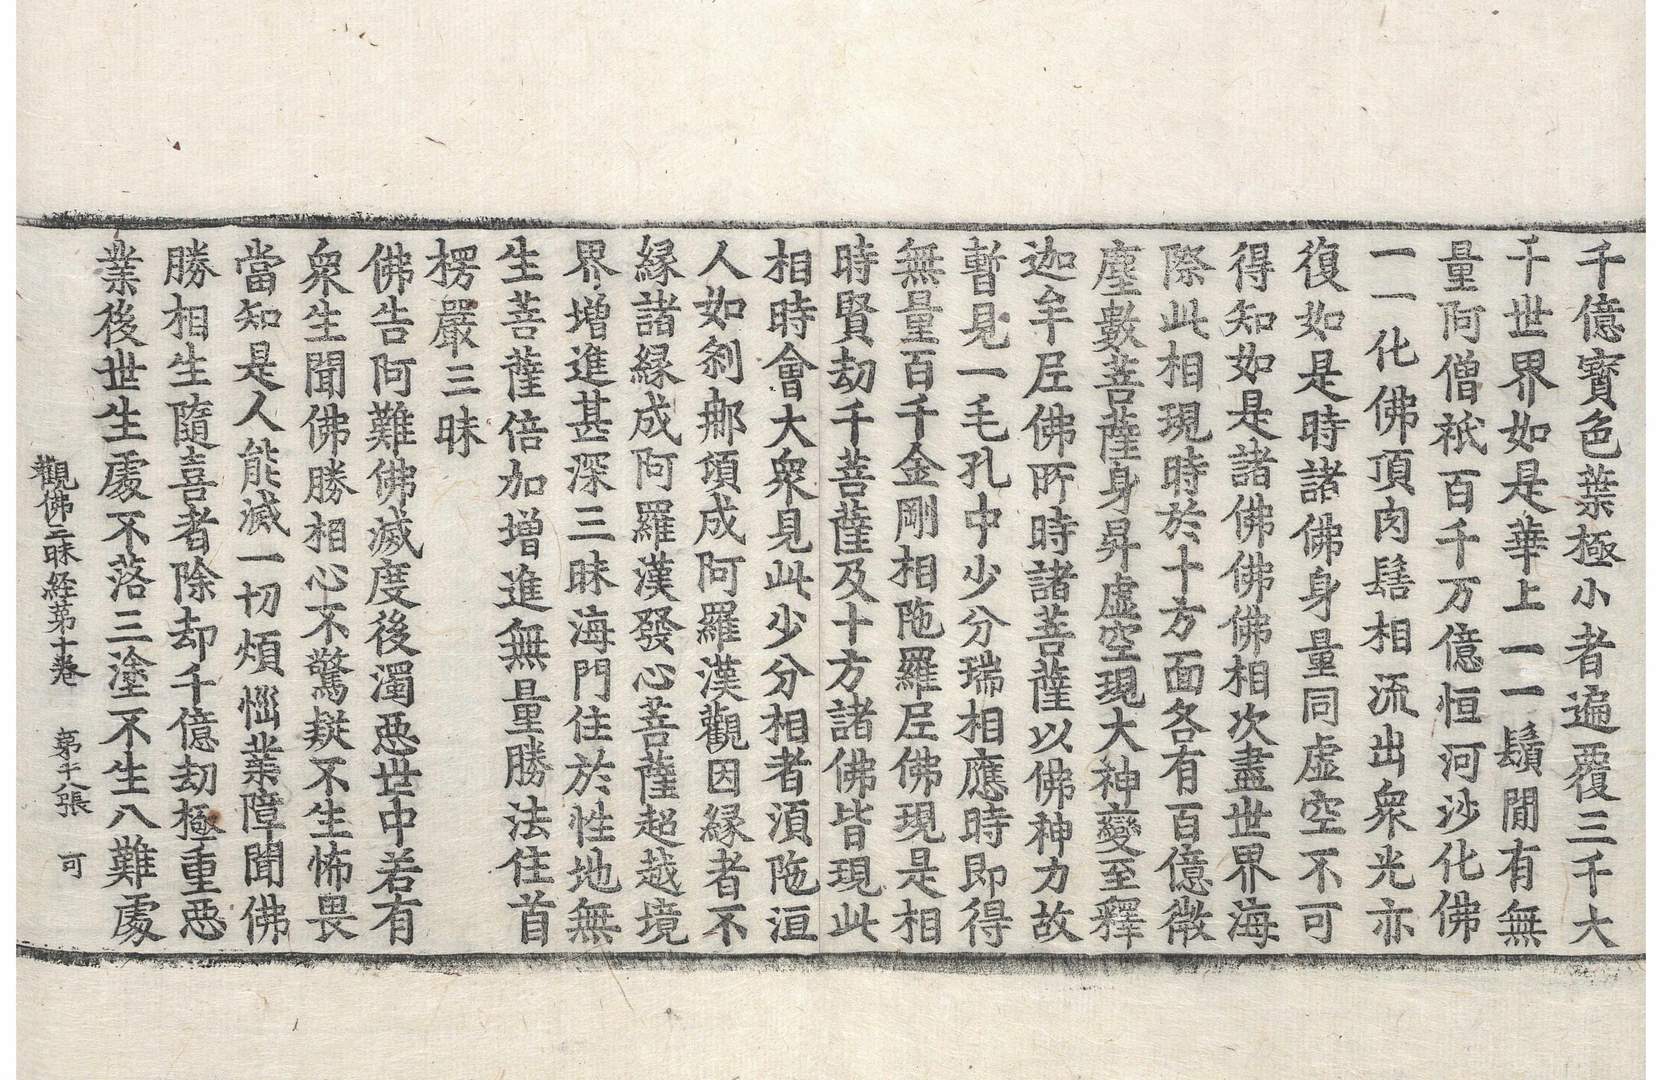 千億寶色葉極小者遍覆三千大
千世界如是華上一一鬚間有無
量阿僧祇百千万億恒河沙化佛
一一化佛頂肉髻相流出衆光亦
復如是時諸佛身量同虛空不可
得知如是諸佛佛佛相次盡世界海
際此相現時於十方面各有百億微
塵數菩薩身昇虛空現大神變至釋
迦牟尼佛所時諸菩薩以佛神力故
暫見一毛孔中少分瑞相應時即得
無量百千金剛相陁羅尼佛現是相
時賢劫千菩薩及十方諸佛皆現此
相時會大衆見此少分相者湏陁洹
人如刹那頃成阿羅漢觀因縁者不
縁諸縁成阿羅漢發心菩薩超越境
界增進甚深三昧海門住於性地無
生菩薩倍加增進無量勝法住首
楞嚴三昧
佛告阿難佛滅度後濁惡世中若有
衆生聞佛勝相心不驚疑不生怖畏
當知是人能滅一切煩惱業障聞佛
勝相生隨喜者除却千億劫極重惡
業後世生處不落三塗不生八難處
觀佛三昧経苐十卷 苐十八張 可